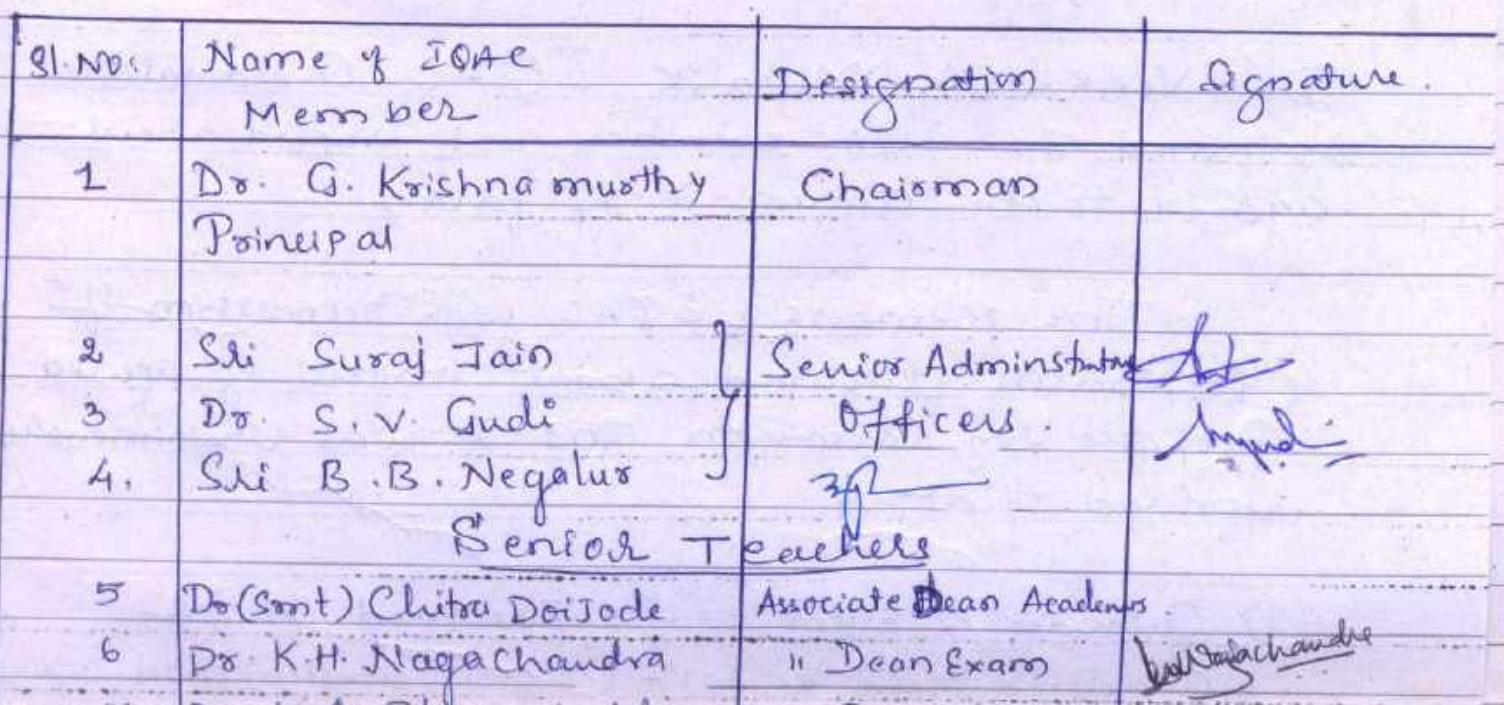 Sl.No: Name of IQAC Member Designation Signature.
1 Dr. G. Krishna murthy Chairman
Principal
2 Sri Suraj Jain Senior Adminstrative
3 Dr. S.V. Gudi Officers.
4. Sri B.B. Negalur
Senior Teachers
5 Dr(Smt) Chitra DoiJode Associate Dean Academics.
6 Dr. K.H. Nagachandra " Dean Exam